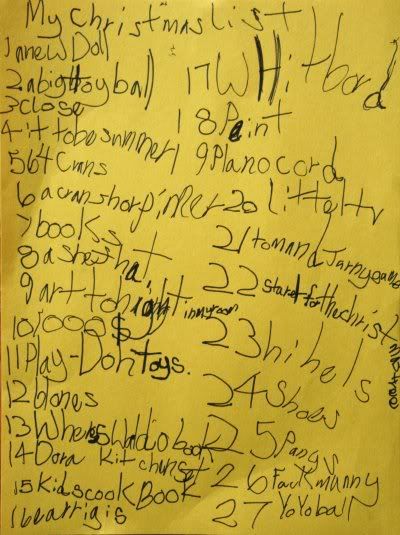 My christmas list
1 a new Doll
2 a big toy ball
3 close
4 it to be summer
5 64 Crans
6 a cran shorpinner
7 books
8 a shest hat
9 art to hight in my room
10 1,000$
11 Play-Doh toys.
12 bjones
13 Where's Waldo book
14 Dora kit chunset
15 Kids cook Book
16 earrigis
17 WHitbord
18 Paint
19 Planocord
20 Littel tv
21 tom and Jarry game
22 stare for the christ
23 hihels
24 Shoes
25 Pangs
26 Fack munny
27 YoYo ball